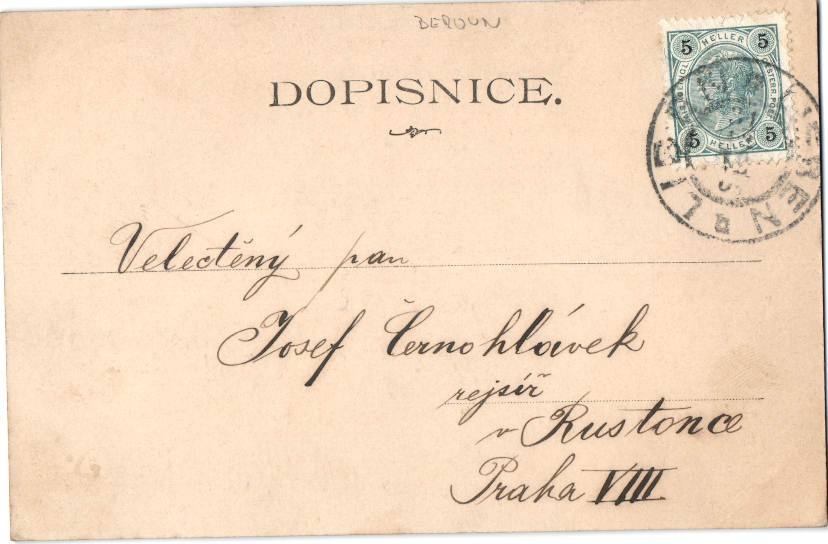 BEROUN
DOPISNICE.
5 HELLER 5
5 HELLER 5
Velectěný pan
Josef Černohlávek
rejsíř
v Rustonce
Praha VIII